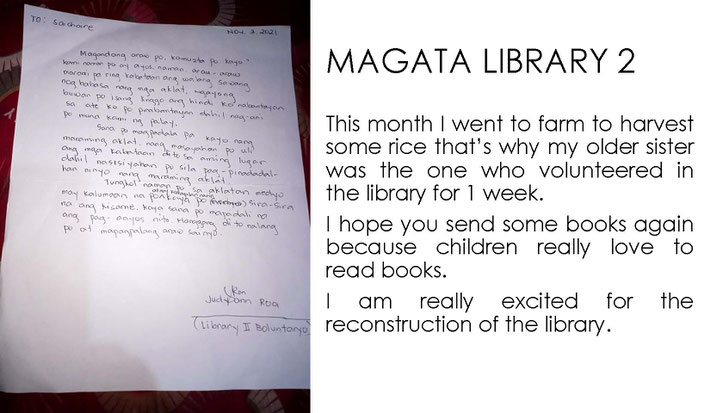 TO: Sachare
Nov. 3, 2021
Magandang araw po, kamusta po kayo?
kami naman po ay ayos naman, araw-araw
marami pa ring kabataan ang walang sawang
nagbabasa nang mga aklat, ngayong
buwan po isang linggo ang hindi ko nabantayan
sa ate ko po pinabantayan dahil nag-ani
po muna kami ng palay.
Sana po magpadala pa kayo nang
maraming aklat, nang masayahan po uli
ang mga kabataan dito sa aming lugar
dahil nasisiyahan po sila pag-pinadadal-
han ninyo nang maraming aklat.
Tungkol naman po sa aklatan medyo
may kalumaan na po kaya po sira-sira
na ang kisame. Kaya sana po mapadali na
ang pag-aayos nito. Hanggang dito nalang
po at mapagpalang araw sa inyo.
Judy Ann Roa
(Library II Boluntaryo)
MAGATA LIBRARY 2
This month I went to farm to harvest
some rice that's why my older sister
was the one who volunteered in
the library for 1 week.
I hope you send some books again
because children really love to
read books.
I am really excited for the
reconstruction of the library.